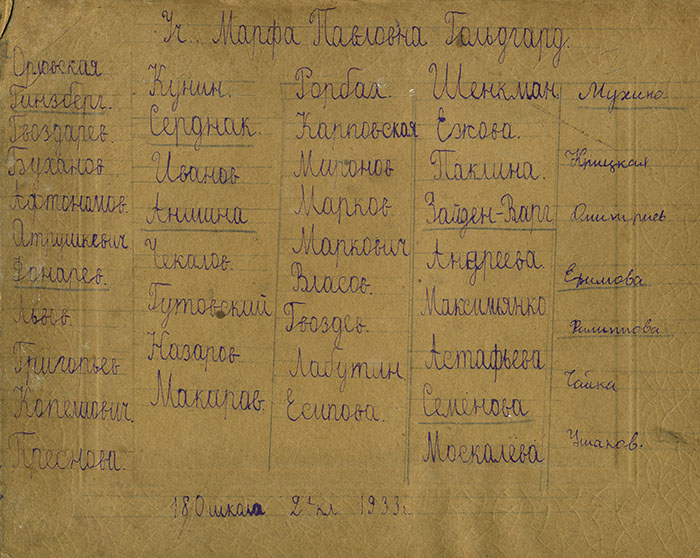 Уч. Марфа Павловна Гольдгард.
Орловская
Гинзберг.
Гвоздарев.
Буханов
Афтономов.
Атрушкевич
Фонарев.
Львов.
Григорьев
Копелиович.
Преснова.
Кунин.
Серднак.
Иванов
Аншина
Чекалов.
Гутовский
Назаров
Макаров.
Рорбах.
Карповская
Миронов
Марков
Маркович
Власов.
Гвоздев
Лабутин
Есипова.
Шенкман
Ежова.
Паклина.
Зайден-Варг
Андреева.
Максимянко
Астафьева
Семёнова
Москалёва
Мухина
Крицкая
Ефимова
Филиппова
Чайка
Ушаков.
180 школа 2 кл. 1933 г.